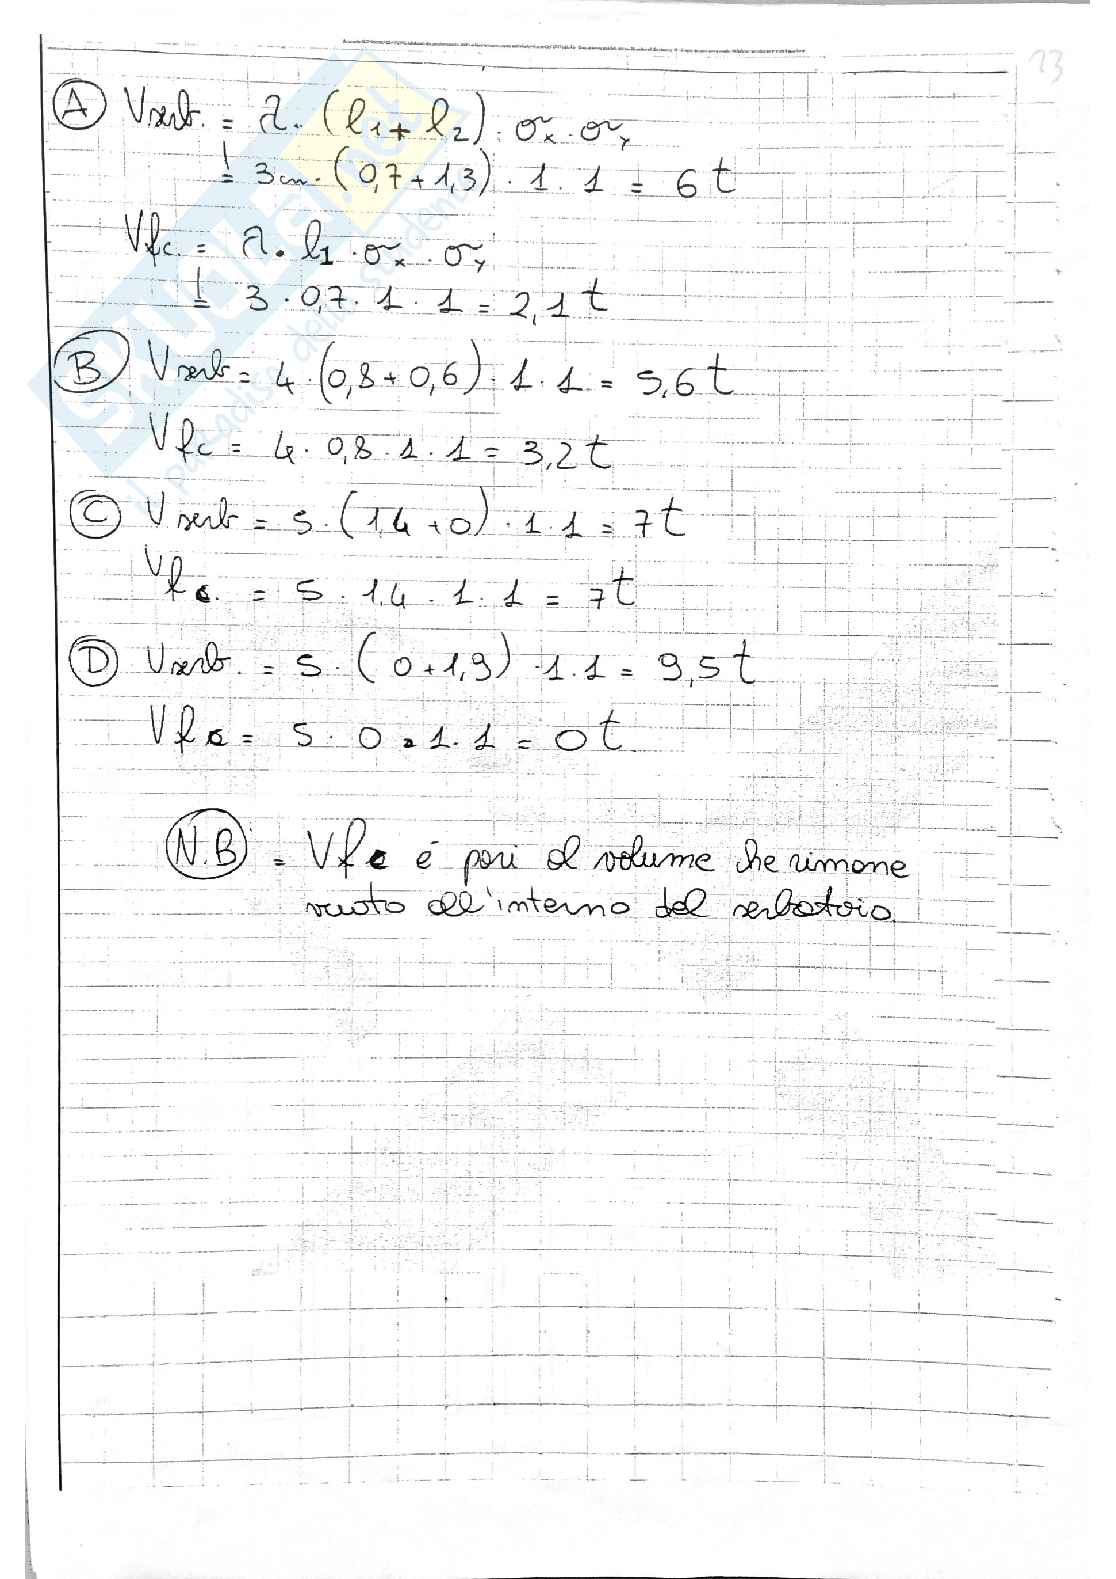 13
A Vserb. = λ · (l1 + l2) · σx · σy
= 3cm · (0,7 + 1,3) · 1 · 1 = 6 t
Vfc. = λ · l1 · σx · σy
= 3 · 0,7 · 1 · 1 = 2,1 t
B Vserb = 4 · (0,8 + 0,6) · 1 · 1 = 5,6 t
Vfc = 4 · 0,8 · 1 · 1 = 3,2 t
C Vserb = 5 · (1,4 + 0) · 1 · 1 = 7 t
Vfc. = 5 · 1,4 · 1 · 1 = 7 t
D Vserb. = 5 · (0 + 1,9) · 1 · 1 = 9,5 t
Vfc = 5 · 0 · 1 · 1 = 0 t
N.B = Vfc é pari al volume che rimane
vuoto all'interno del serbatoio.